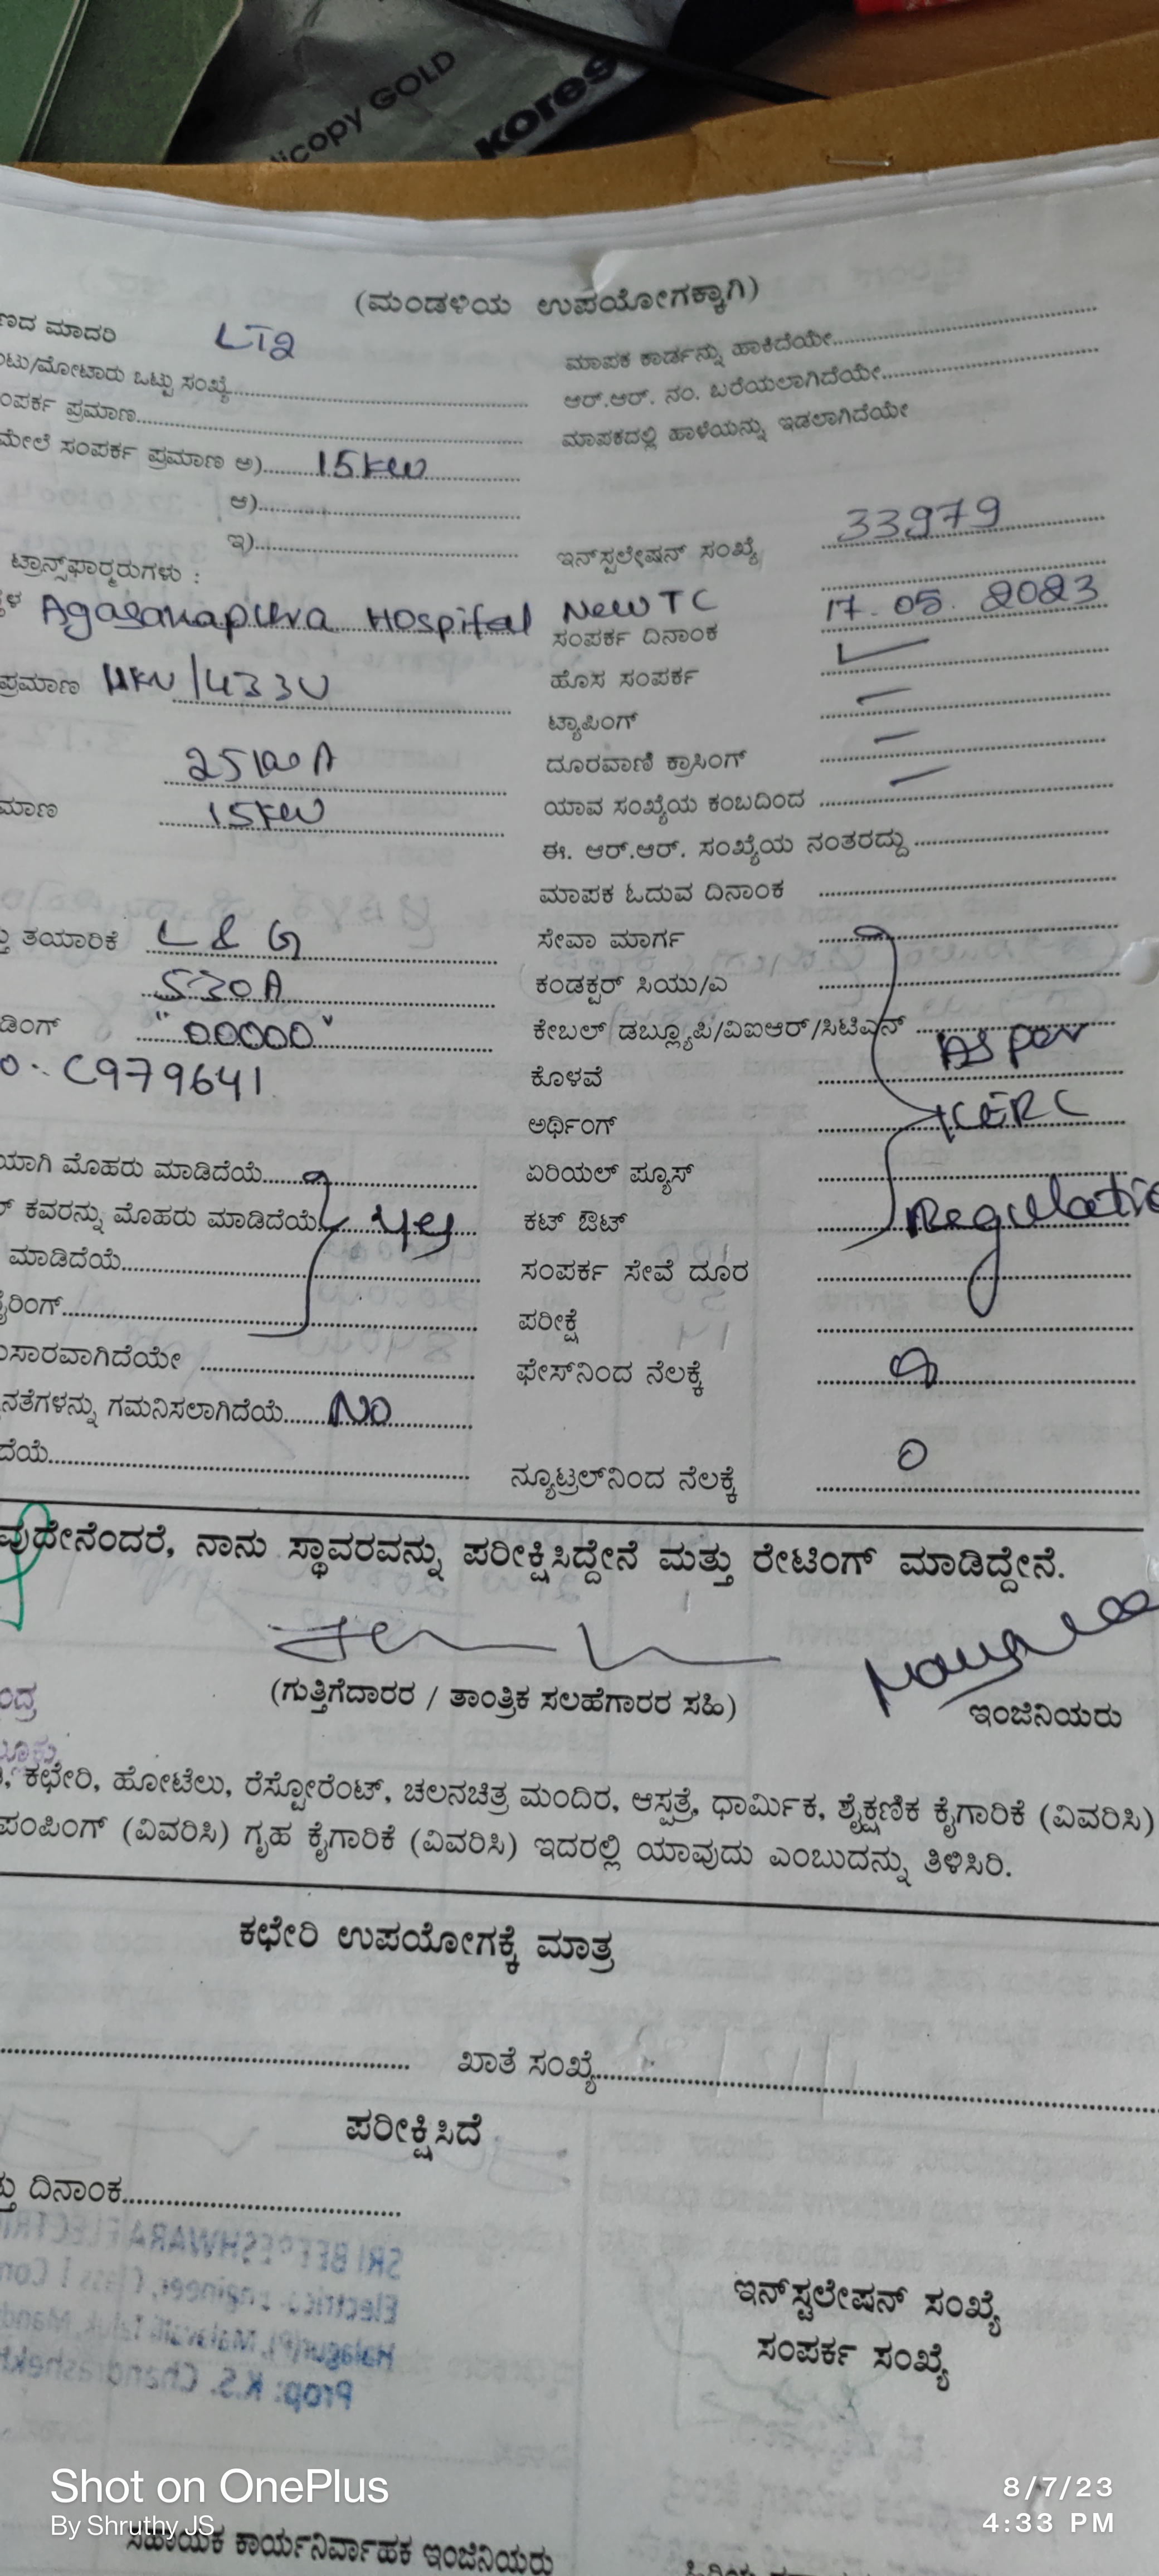 copy GOLD
kores
(ಮಂಡಳಿಯ ಉಪಯೋಗಕ್ಕಾಗಿ)
ಣದ ಮಾದರಿ LT2
ಮಾಪಕ ಕಾರ್ಡನ್ನು ಹಾಕಿದೆಯೇ
ಟು/ಮೋಟಾರು ಒಟ್ಟು ಸಂಖ್ಯೆ
ಆರ್.ಆರ್. ನಂ. ಬರೆಯಲಾಗಿದೆಯೇ
ಂಪರ್ಕ ಪ್ರಮಾಣ
ಮಾಪಕದಲ್ಲಿ ಹಾಳೆಯನ್ನು ಇಡಲಾಗಿದೆಯೇ
ಮೇಲೆ ಸಂಪರ್ಕ ಪ್ರಮಾಣ ಅ) 15kw
ಆ)
ಇ)
ಇನ್‌ಸ್ಟಲೇಷನ್ ಸಂಖ್ಯೆ 33979
ಟ್ರಾನ್ಸ್‌ಫಾರ್ಮರುಗಳು :
Agasanapura Hospital New TC
ಸಂಪರ್ಕ ದಿನಾಂಕ 17.05.2023
ಪ್ರಮಾಣ 11KV/433V
ಹೊಸ ಸಂಪರ್ಕ ✓
ಟ್ಯಾಪಿಂಗ್ –
25
ದೂರವಾಣಿ ಕ್ರಾಸಿಂಗ್ –
ಮಾಣ 15kw
ಯಾವ ಸಂಖ್ಯೆಯ ಕಂಬದಿಂದ –
ಈ. ಆರ್.ಆರ್. ಸಂಖ್ಯೆಯ ನಂತರದ್ದು
ಮಾಪಕ ಓದುವ ದಿನಾಂಕ
ತು ತಯಾರಿಕೆ L & G
ಸೇವಾ ಮಾರ್ಗ
5-30A
ಕಂಡಕ್ಟರ್ ಸಿಯು/ಎ
ಡಿಂಗ್ "00000"
ಕೇಬಲ್ ಡಬ್ಲ್ಯೂಪಿ/ವಿಐಆರ್/ಸಿಟಿಎನ್ As per
C979641
ಕೊಳವೆ
ಅರ್ಥಿಂಗ್ KERC
ಯಾಗಿ ಮೊಹರು ಮಾಡಿದೆಯೆ
ಏರಿಯಲ್ ಪ್ಯೂಸ್
ಕವರನ್ನು ಮೊಹರು ಮಾಡಿದೆಯೆ Yes
ಕಟ್ ಔಟ್ Regulatio
ಮಾಡಿದೆಯೆ
ಸಂಪರ್ಕ ಸೇವೆ ದೂರ
ರಿಂಗ್
ಪರೀಕ್ಷೆ
ುಸಾರವಾಗಿದೆಯೇ
ಫೇಸ್‌ನಿಂದ ನೆಲಕ್ಕೆ
ನತೆಗಳನ್ನು ಗಮನಿಸಲಾಗಿದೆಯೆ No
ದೆಯೆ
ನ್ಯೂಟ್ರಲ್‌ನಿಂದ ನೆಲಕ್ಕೆ 0
ವುದೇನೆಂದರೆ, ನಾನು ಸ್ಥಾವರವನ್ನು ಪರೀಕ್ಷಿಸಿದ್ದೇನೆ ಮತ್ತು ರೇಟಿಂಗ್ ಮಾಡಿದ್ದೇನೆ.
(ಗುತ್ತಿಗೆದಾರರ / ತಾಂತ್ರಿಕ ಸಲಹೆಗಾರರ ಸಹಿ)
ಇಂಜಿನಿಯರು
ಕಛೇರಿ, ಹೋಟೆಲು, ರೆಸ್ಟೋರೆಂಟ್, ಚಲನಚಿತ್ರ ಮಂದಿರ, ಆಸ್ಪತ್ರೆ, ಧಾರ್ಮಿಕ, ಶೈಕ್ಷಣಿಕ ಕೈಗಾರಿಕೆ (ವಿವರಿಸಿ)
ಪಂಪಿಂಗ್ (ವಿವರಿಸಿ) ಗೃಹ ಕೈಗಾರಿಕೆ (ವಿವರಿಸಿ) ಇದರಲ್ಲಿ ಯಾವುದು ಎಂಬುದನ್ನು ತಿಳಿಸಿರಿ.
ಕಛೇರಿ ಉಪಯೋಗಕ್ಕೆ ಮಾತ್ರ
ಖಾತೆ ಸಂಖ್ಯೆ
ಪರೀಕ್ಷಿಸಿದೆ
ತು ದಿನಾಂಕ
ಇನ್‌ಸ್ಟಲೇಷನ್ ಸಂಖ್ಯೆ
ಸಂಪರ್ಕ ಸಂಖ್ಯೆ
Shot on OnePlus
By Shruthy JS
8/7/23
4:33 PM
ಸಹಾಯಕ ಕಾರ್ಯನಿರ್ವಾಹಕ ಇಂಜಿನಿಯರು